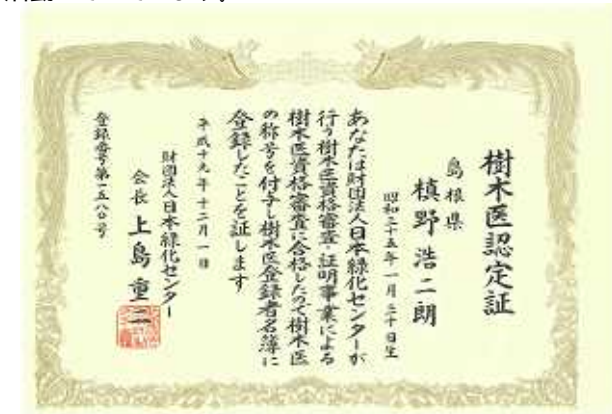 樹木医認定証
島根県
槙野浩二朗
昭和三十五年一月三十日生
あなたは財団法人日本緑化センターが
行う樹木医資格審査・証明事業による
樹木医資格審査に合格したので樹木医
の称号を付与し樹木医登録者名簿に
登録したことを証します
平成十九年十二月一日
財団法人日本緑化センター
会長 上島重二
登録番号第一五八〇号